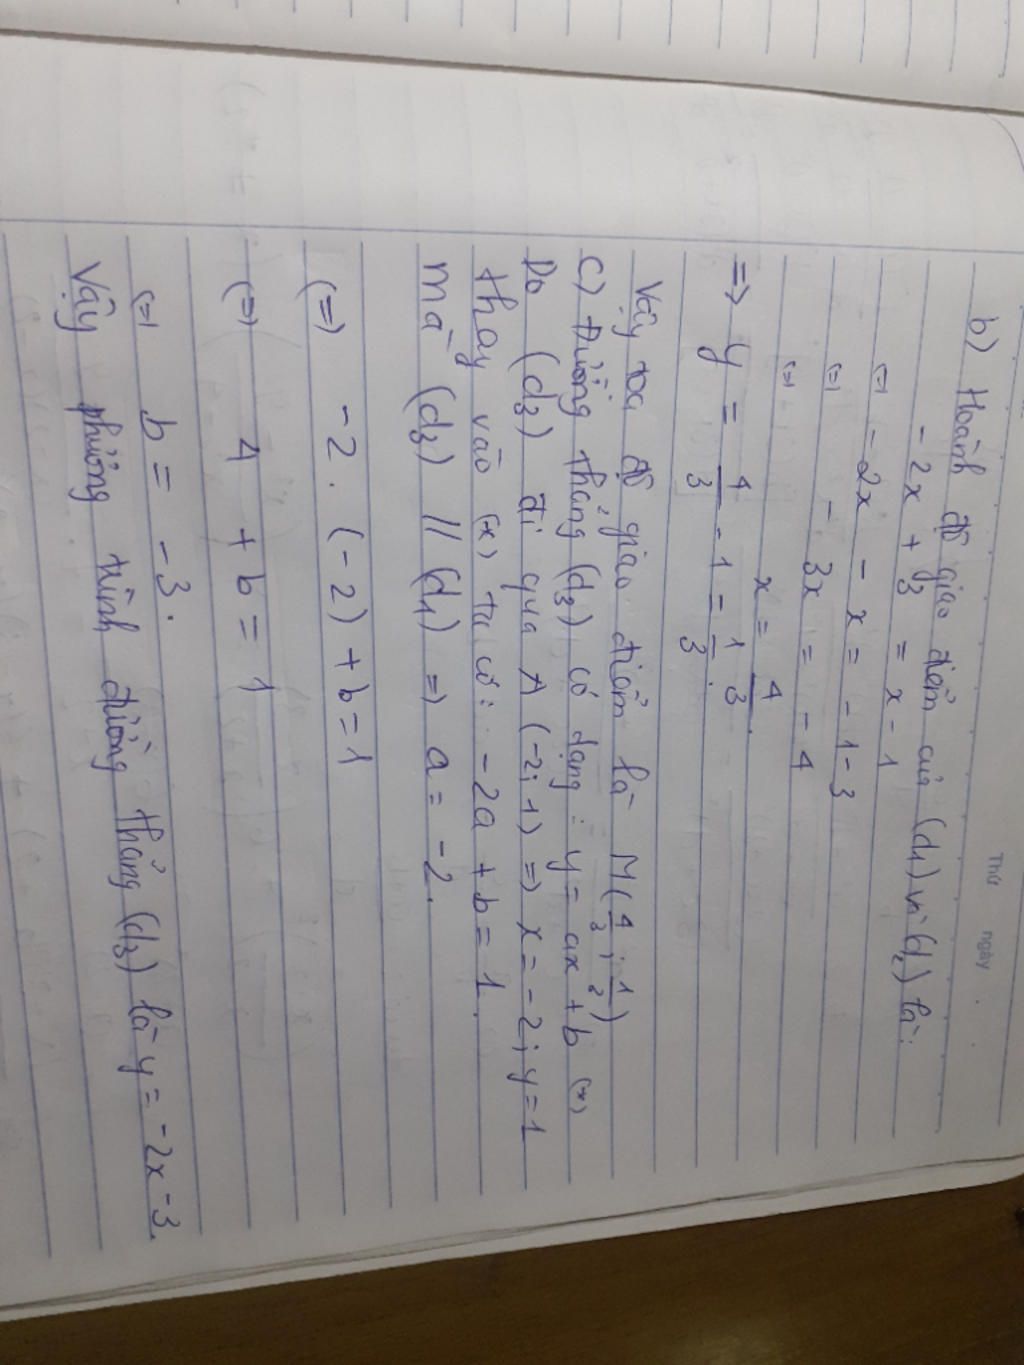 Thứ ngày
b) Hoành độ giao điểm của (d1) và (d2) là:
- 2x + 3 = x - 1
(=) - 2x - x = - 1 - 3
(=) - 3x = - 4
(=) x = 4/3.
=> y = 4/3 - 1 = 1/3.
Vậy toạ độ giao điểm là M(4/3; 1/2)
c) Đường thẳng (d3) có dạng: y = ax + b (*)
Do (d3) đi qua A (-2; 1) => x = -2; y = 1
thay vào (*) ta có: -2a + b = 1.
mà (d3) // (d1) => a = -2.
(=) -2. (-2) + b = 1
(=) 4 + b = 1
(=) b = -3.
Vậy phương trình đường thẳng (d3) là y = -2x - 3.